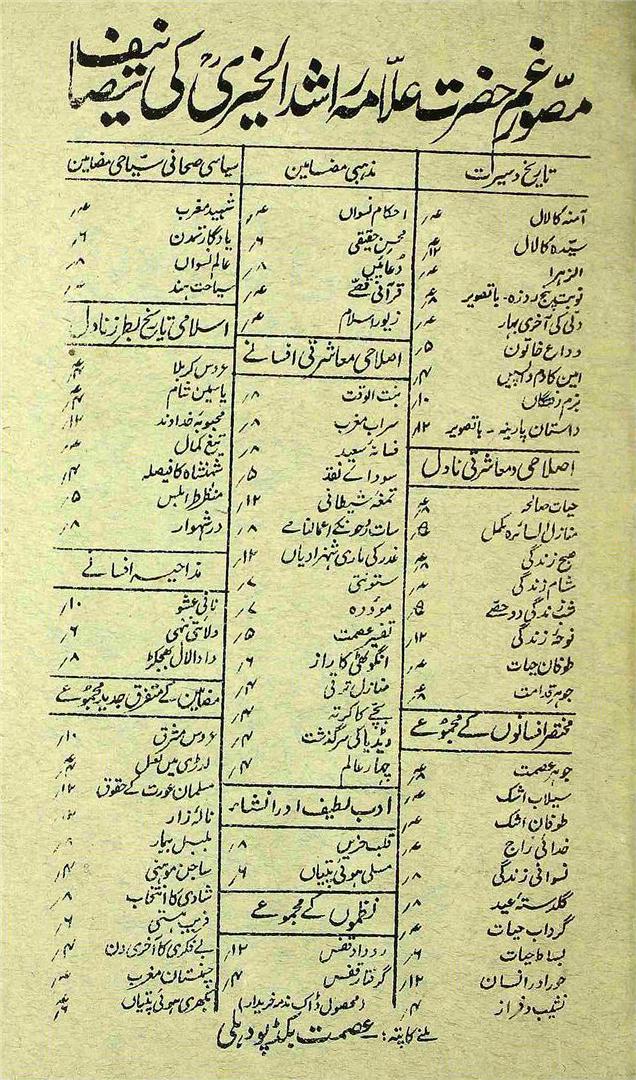 مصورِ غم حضرت علامہ راشد الخیریؒ کی تصانیف
تاریخ و سیرت
آمنہ کا لال ؏
سیدہ کا لال ۱۲؍
الزہرا ؏
نوبت پنج روزہ - باتصویر ۸؍
دلی کی آخری بہار ؏
وداع خاتون ۵؍
امین کا دم واپسیں ۴؍
بزم رفتگاں ۱۰؍
داستان پارینہ - باتصویر ۱۲؍
اصلاحی و معاشرتی ناول
حیات صالحہ ۸؍
منازل السائرہ مکمل
صبح زندگی ۸؍
شام زندگی ؏
شب زندگی دو حصے
نوحۂ زندگی ۱۲؍
طوفان حیات ؏
جوہر قدامت ۸؍
مختصر افسانوں کے مجموعے
جوہر عصمت ۸؍
سیلاب اشک ؏
طوفان اشک ؏
خدائی راج ؏
نسوانی زندگی ۸؍
گلدستہ عید ۸؍
گرداب حیات ؏
بساط حیات ۶؍
حور اور انسان ۱۲؍
نشیب و فراز ۴؍
مذہبی مضامین
احکام نسواں ؏
محسن حقیقی ۶؍
دعائیں ۸؍
قرآنی قصے ؏
زیور اسلام ؏
اصلاحی معاشرتی افسانے
بنت الوقت ۸؍
سراب مغرب ۸؍
فسانۂ سعید ۸؍
سودائے نقد ۵؍
تمغہ شیطانی ۱۲؍
سات روحوں کے اعمالنامے ۸؍
غدر کی ماری شہزادیاں ۱۲؍
ستونتی ۷؍
موؤدہ ۷؍
تفسیر عصمت ۵؍
انگوٹھی کا راز ۶؍
منازل ترقی ۴؍
بچے کا کرتہ ۴؍
ویڈیا کی سرگذشت ۴؍
چہار عالم ۴؍
ادب لطیف اور انشاء
قلب حزیں ۸؍
مسلی ہوئی پتیاں ۶؍
نظموں کے مجموعے
روداد قفس ۱۲؍
گرفتار قفس ۴؍
(محصول ڈاک بذمہ خریدار)
سیاسی صحافی سیاحی مضامین
شہید مغرب ؏
یادگار تمدن ۶؍
عالم نسواں ۸؍
سیاحت ہند ؏
اسلامی تاریخ بطرز ناول
عروس کربلا
یاسمین شام
محبوبۂ خداوند ۱۲؍
تیغ کمال ؏
شہنشاہ کا فیصلہ ۴؍
منظر طرابلس ۵؍
در شہوار ۸؍
مزاحیہ افسانے
نانی عشو ۱۰؍
ولایتی ننھی ۶؍
دادا لال بجھکڑ ۸؍
مضامین کے متفرق جدید مجموعے
عروس مشرق ۱۰؍
گدڑی میں لعل
مسلمان عورت کے حقوق ۱۲؍
نالۂ زار
بلبل بیمار ۸؍
ساجن موہنی ۴؍
شادی کا انتخاب ۸؍
فریب ہستی ۶؍
بے فکری کا آخری دن ۴؍
چمنستان مغرب ؏
بکھری ہوئی پتیاں ۶؍
ملنے کا پتہ: عصمت بکڈپو دہلی